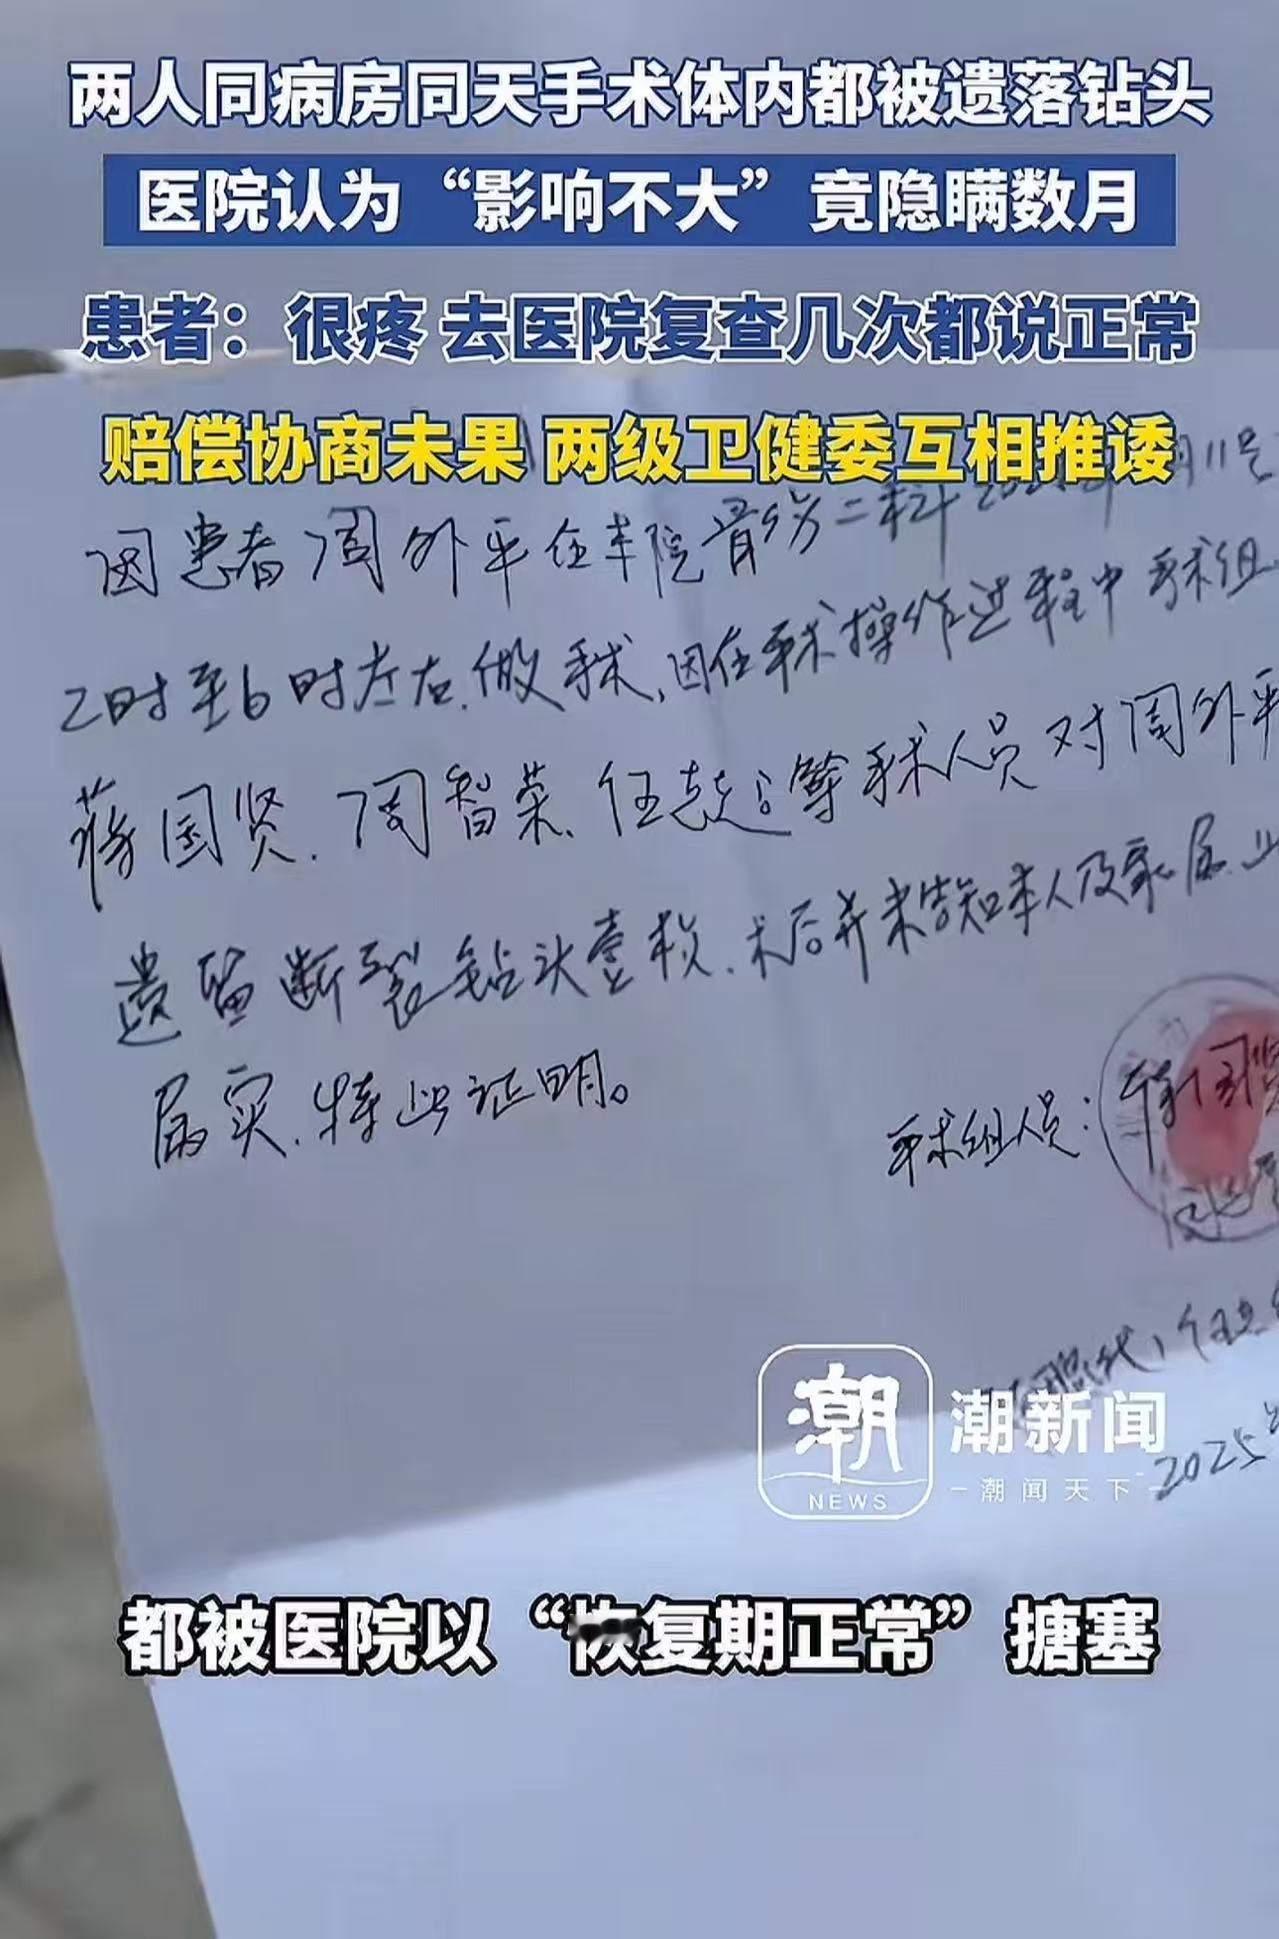 两人同病房同天手术体内都被遗落钻头
医院认为“影响不大”竟隐瞒数月
患者：很疼 去医院复查几次都说正常
赔偿协商未果 两级卫健委互相推诿
因患者周外平在本院骨伤二科 月11号
2时至6时左右.做手术,因在手术操作过程中手术组
蒋国贤.周智荣.任 等手术人员对周外平
遗留断裂钻头壹枚.术后并未告知本人及家属.
属实.特此证明。
手术组人员：
潮
NEWS
潮新闻
潮闻天下
2025年
都被医院以“恢复期正常”搪塞